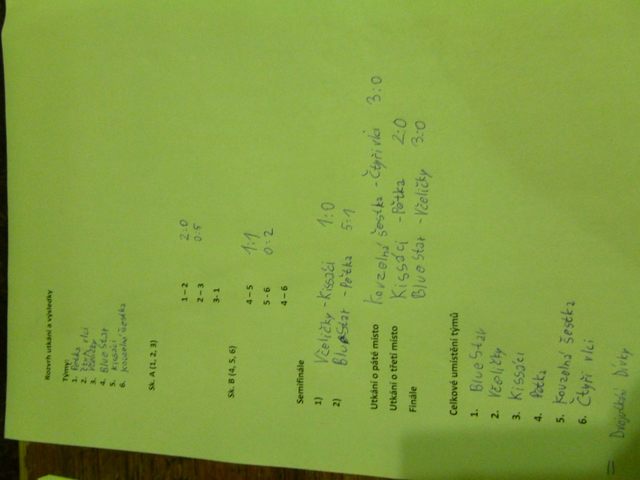 Rozvrh utkání a výsledky
Týmy:
1. Pětka
2. Čtyři vlci
3. Včeličky
4. Blue Star
5. Kissáci
6. Kouzelná šestka
Sk. A (1, 2, 3)
1 – 2 2:0
2 – 3 0:5
3- 1
Sk. B (4, 5, 6)
4 – 5 1:1
5 - 6 0:2
4 – 6
Semifinále
1) Včeličky - Kissáci 1:0
2) Blue Star - Pětka 5:1
Utkání o páté místo Kouzelná šestka - Čtyři vlci 3:0
Utkání o třetí místo Kissáci - Pětka 2:0
Finále Blue Star - Včeličky 3:0
Celkové umístění týmů
1. Blue Star
2. Včeličky
3. Kissáci
4. Pětka
5. Kouzelná šestka
6. Čtyři vlci
= Dívky